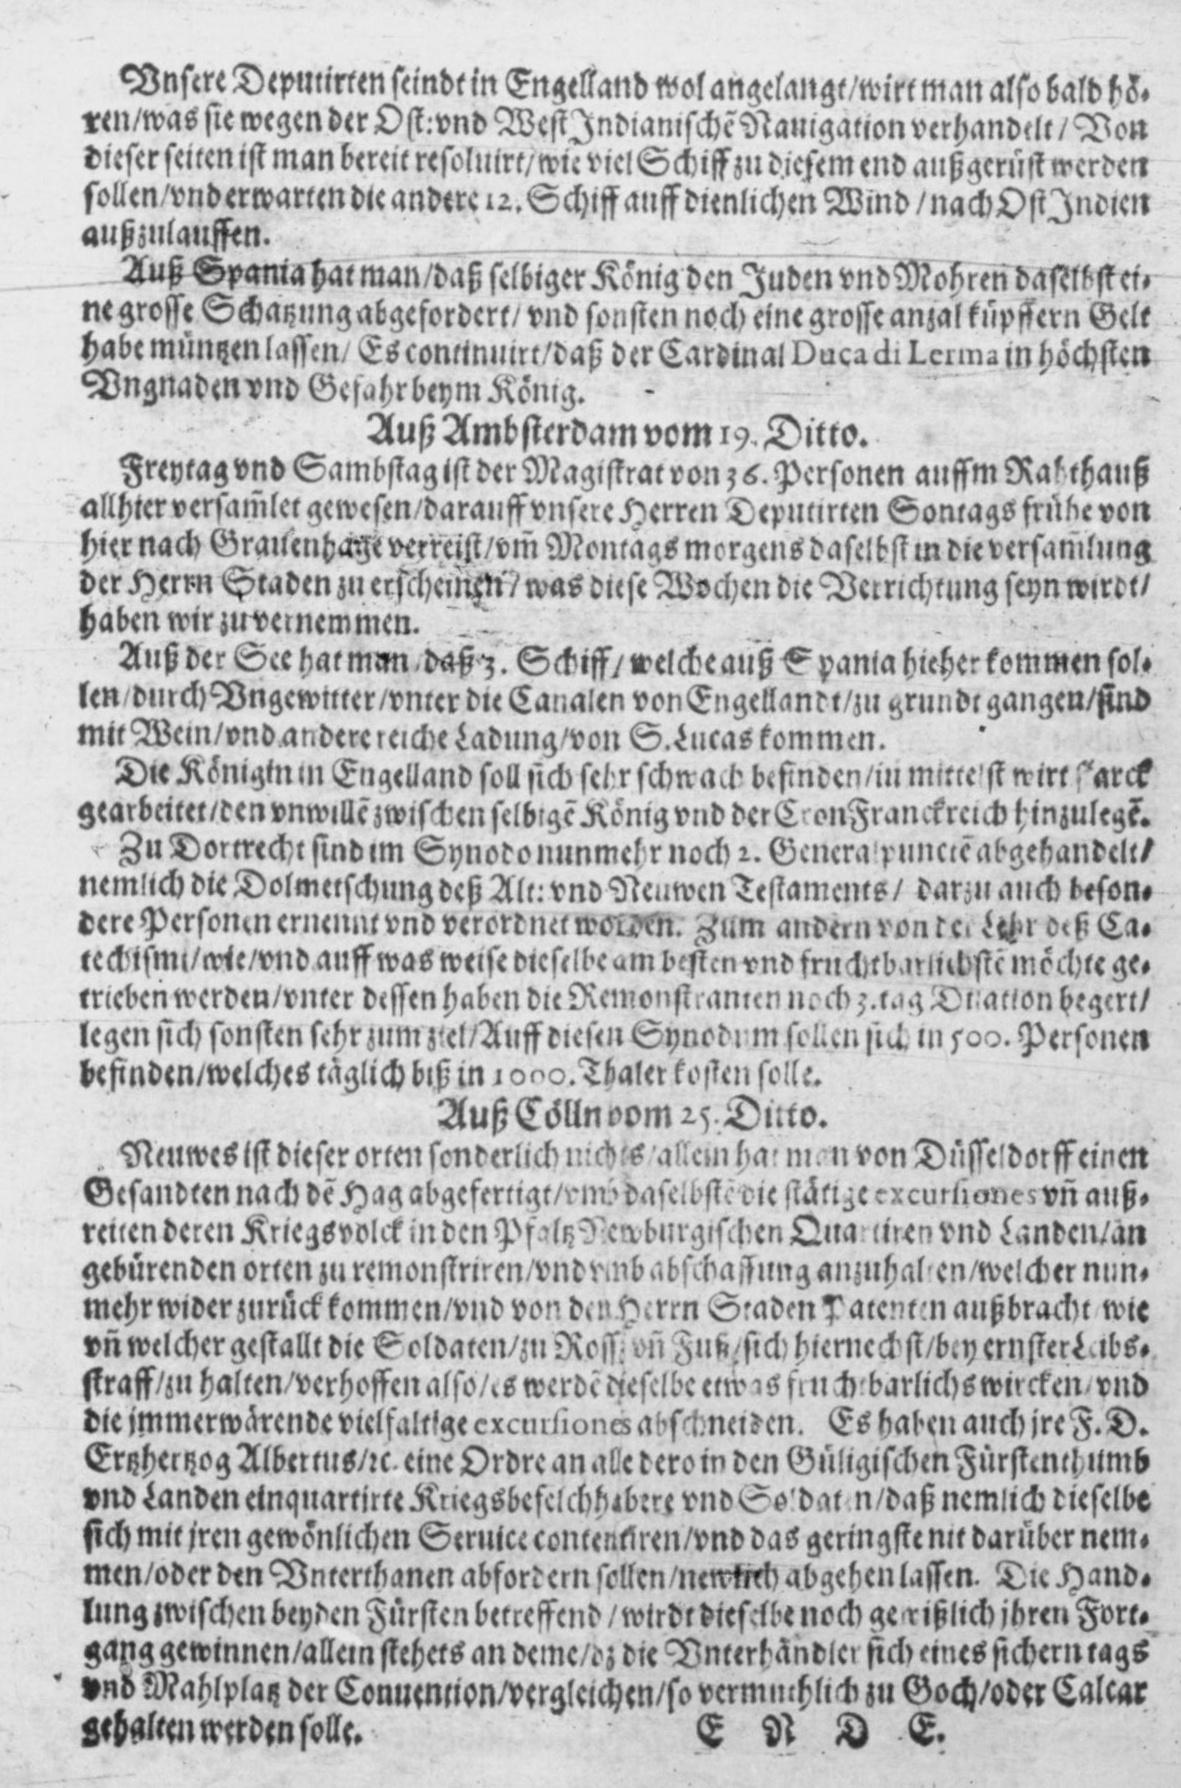 Vnsere Deputirten seindt in Engelland wol angelangt/wirt man also bald hö-
ren/was sie wegen der Ost: vnd West Indianischē Nauigation verhandelt/ Von
dieser seiten ist man bereit resoluirt/wie viel Schiff zu diesem end außgerüst werden
sollen/vnd erwarten die andere 12. Schiff auff dienlichen Wind/nach Ost Indien
außzulauffen.
Auß Spania hat man/daß selbiger König den Juden vnd Mohren daselbst ei-
ne grosse Schatzung abgefordert/ vnd sonsten noch eine grosse anzal küpffern Gelt
habe müntzen lassen/ Es continuirt/daß der Cardinal Duca di Lerma in höchsten
Vngnaden vnd Gefahr beym König.
Auß Ambsterdam vom 19. Ditto.
Freytag vnd Sambstag ist der Magistrat von 36. Personen auffm Rahthauß
allhier versam̃let gewesen/darauff vnsere Herren Deputirten Sontags frühe von
hier nach Grauenhage verreist/vm̃ Montags morgens daselbst in die versam̃lung
der Herrn Staden zu erscheinen/was diese Wochen die Verrichtung seyn wirdt/
haben wir zu vernemmen.
Auß der See hat man/daß 3. Schiff/welche auß Spania hieher kommen sol-
len/durch Vngewitter/vnter die Canalen von Engellandt/zu grundt gangen/sind
mit Wein/vnd andere reiche Ladung/von S. Lucas kommen.
Die Königin in Engelland soll sich sehr schwach befinden/in mittelst wirt starck
gearbeitet/den vnwillē zwischen selbigē König vnd der Cron Franckreich hinzulegē.
Zu Dortrecht sind im Synodo nunmehr noch 2. Generalpunctē abgehandelt/
nemlich die Dolmetschung deß Alt: vnd Neuwen Testaments/ darzu auch beson-
dere Personen ernennt vnd verordnet worden. Zum andern von der Lehr deß Ca-
techismi/wie/vnd auff was weise dieselbe am besten vnd fruchtbarlichstē möchte ge-
trieben werden/vnter dessen haben die Remonstranten noch 3. tag Dilation begert/
legen sich sonsten sehr zum ziel/Auff diesen Synodum sollen sich in 500. Personen
befinden/welches täglich biß in 1000. Thaler kosten solle.
Auß Cölln vom 25. Ditto.
Neuwes ist dieser orten sonderlich nichts/allein hat man von Düsseldorff einen
Gesandten nach dē Hag abgefertigt/vmb daselbstē die stätige excursiones vn̄ auß-
reiten deren Kriegsvolck in den Pfaltz Newburgischen Quartiren vnd Landen/an
gebürenden orten zu remonstriren/vnd vmb abschaffung anzuhalten/welcher nun-
mehr wider zurück kommen/vnd von den Herrn Staden Patenten außbracht/wie
vn̄ welcher gestallt die Soldaten/zu Ross vn̄ Fuß/sich hiernechst/bey ernster Leibs-
straff/zu halten/verhoffen also/es werdē dieselbe etwas fruchtbarlichs wircken/vnd
die jmmerwärende vielfaltige excursiones abschneiden. Es haben auch jre F. D.
Ertzhertzog Albertus/ꝛc. eine Ordre an alle dero in den Güligischen Fürstenthumb
vnd Landen einquartirte Kriegsbefelchhabere vnd Soldaten/daß nemlich dieselbe
sich mit jren gewönlichen Seruice contentiren/vnd das geringste nit darüber nem-
men/oder den Vnterthanen abfordern sollen/newlich abgehen lassen. Die Hand-
lung zwischen beyden Fürsten betreffend/wirdt dieselbe noch gewißlich jhren Fort-
gang gewinnen/allein stehets an deme/dz die Vnterhändler sich eines sichern tags
vnd Mahlplatz der Conuention/vergleichen/so vermuthlich zu Goch/oder Calcar
gehalten werden solle. E N D E.